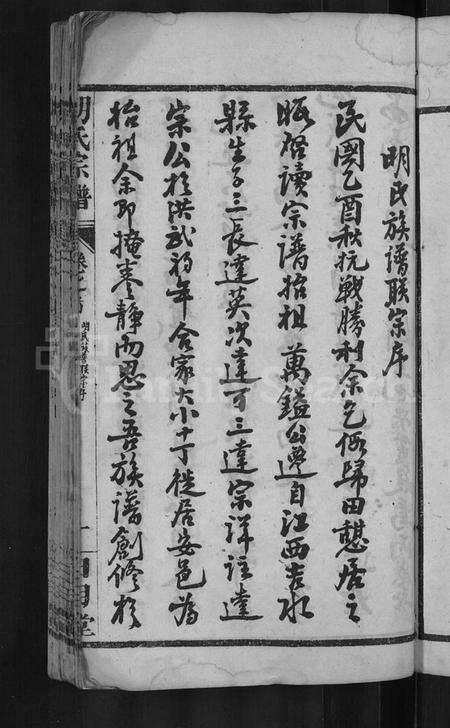 明氏族譜聯宗序
民國乙酉秋抗戰勝利余乞假歸田憩居之
暇啓讀宗譜始祖萬鎰公遷自江西吉水
縣生子三長達英次達可三達宗詳註達
宗公於洪武初年合家大小十丁徙居安邑為
始祖余即掩卷靜而思之吾族譜創修於
明氏宗譜
FamilySearch